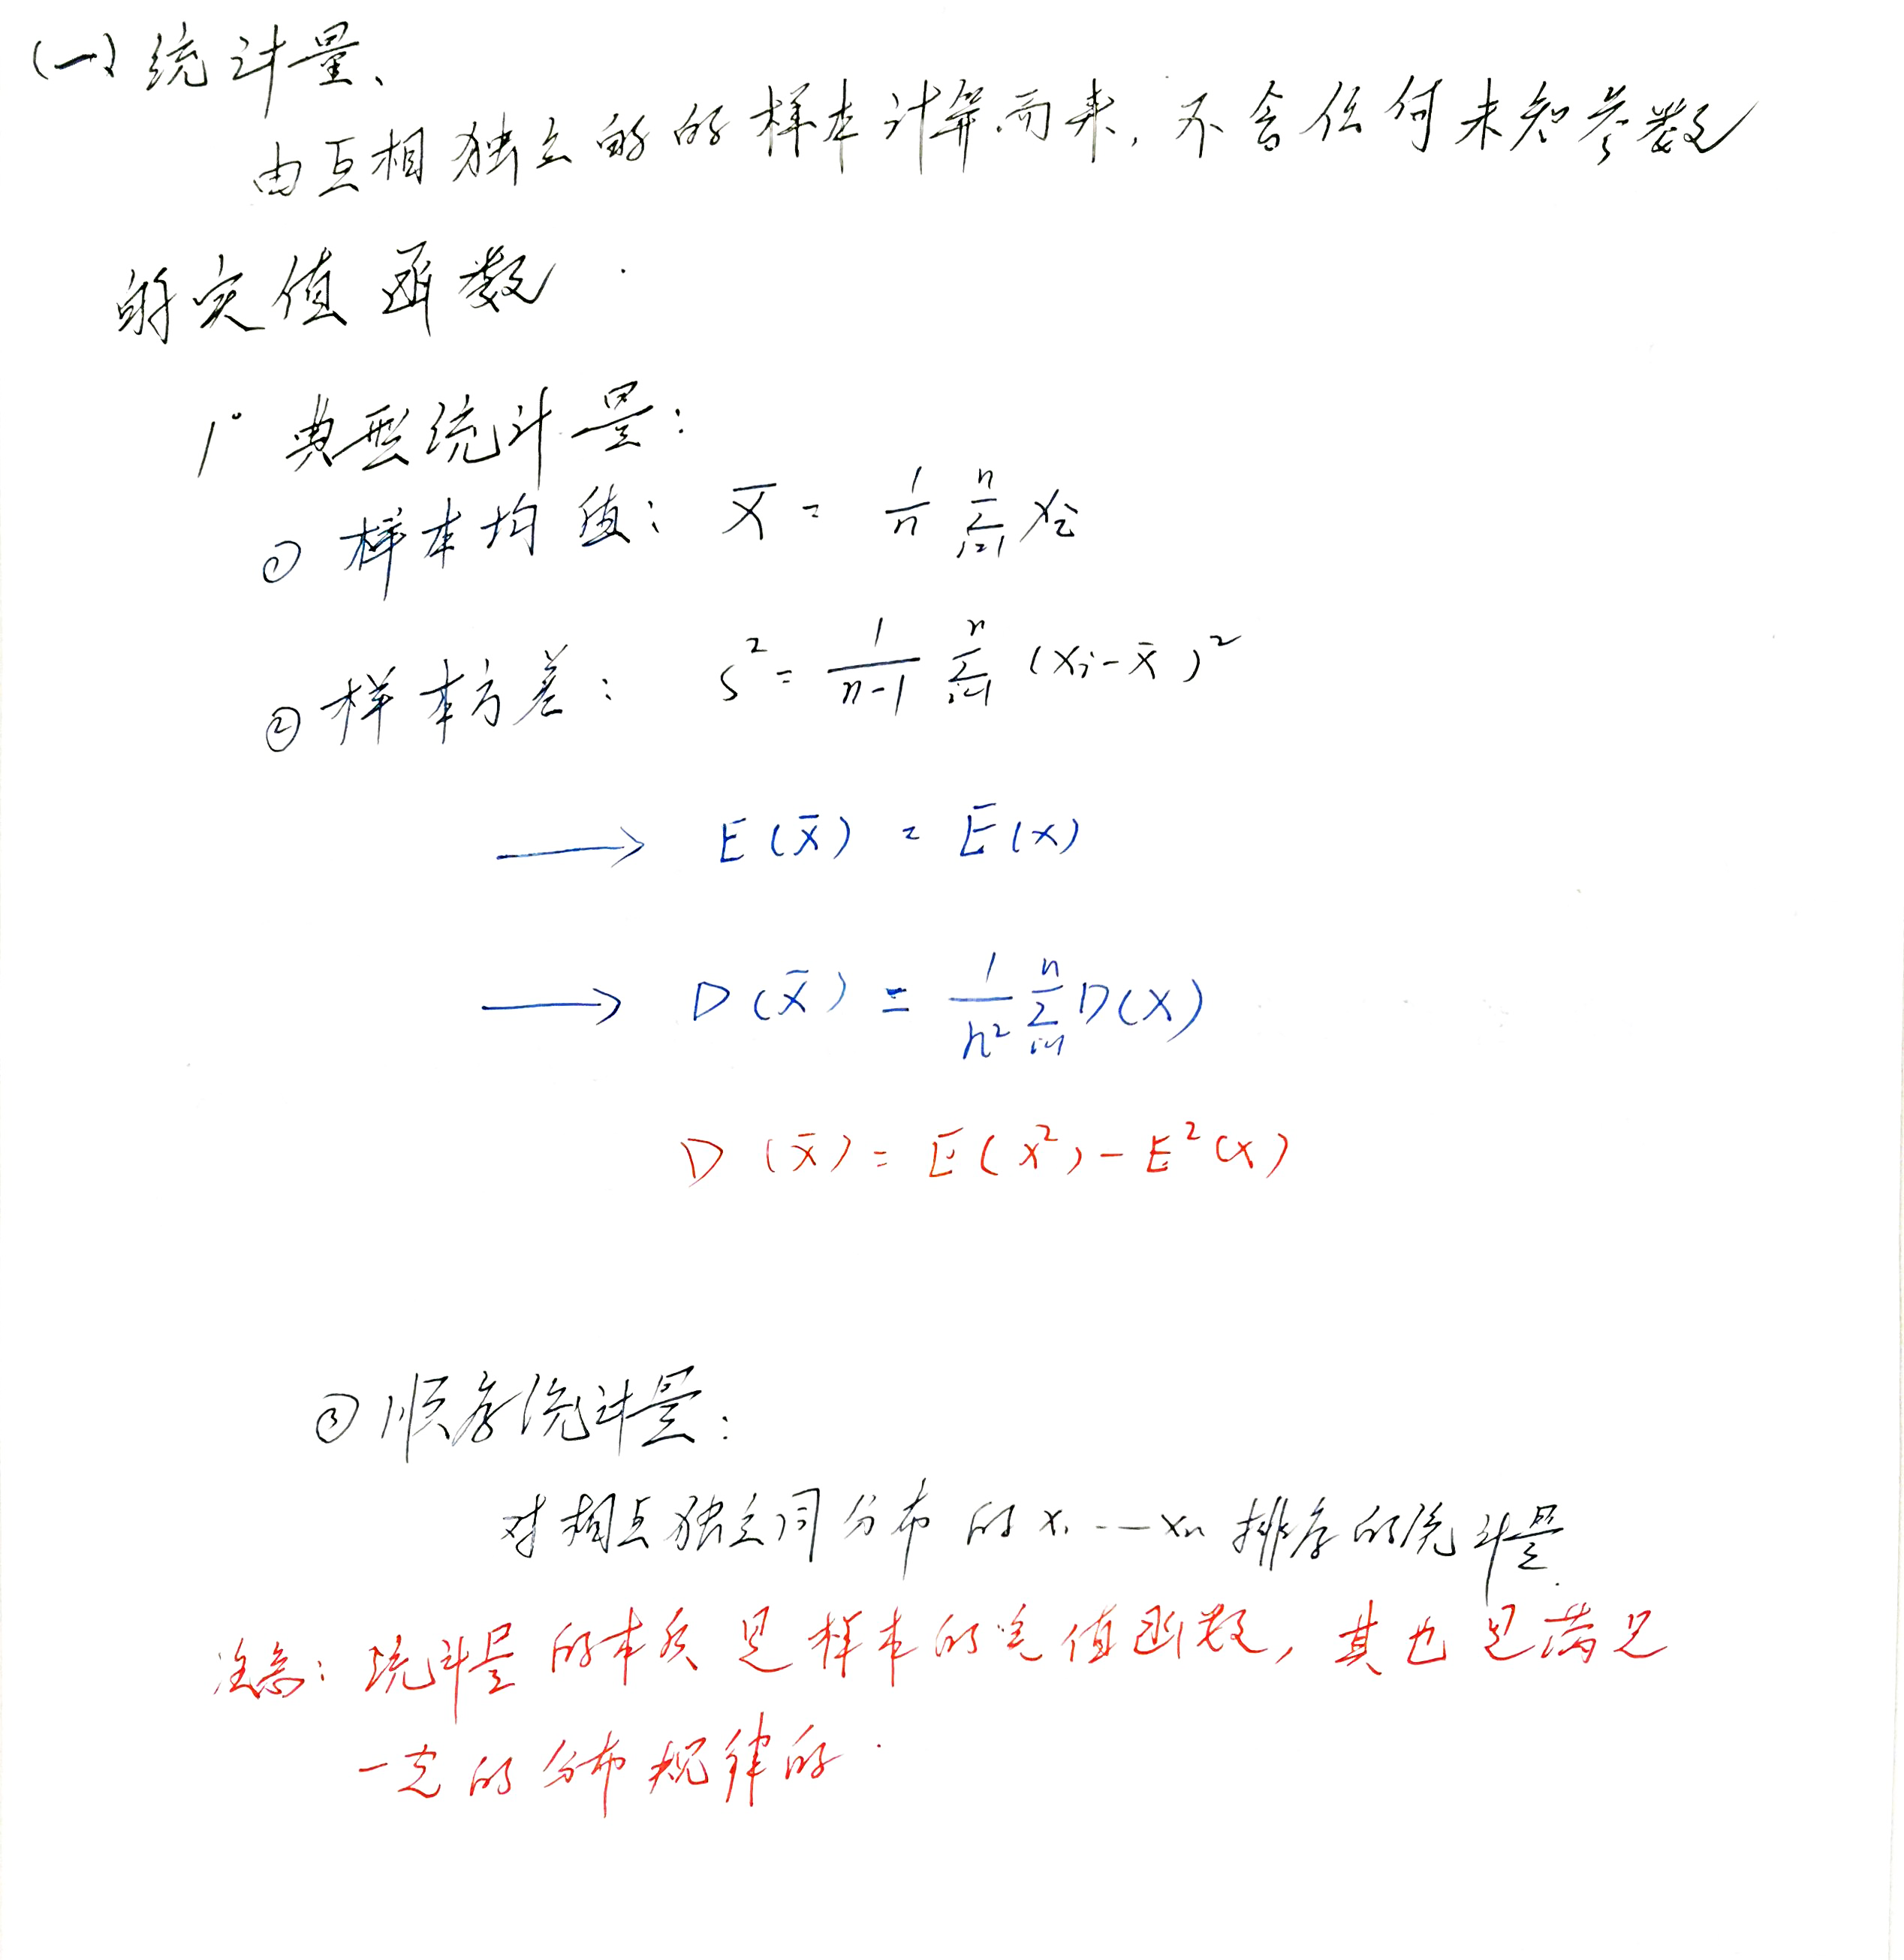 (一) 统计量、
由互相独立的的样本计算而来, 不含任何未知参数
的定值函数.
1° 典型统计量:
① 样本均值: X̄ = 1/n ∑_{i=1}^{n} Xi
② 样本方差: S² = 1/(n-1) ∑_{i=1}^{n} (xi - x̄)²
→ E(x̄) = E(x)
→ D(x̄) = 1/n² ∑_{i=1}^{n} D(X)
D(x̄) = E(x²) - E²(x)
③ 顺序统计量:
对相互独立同分布的 x₁ --- xn 排序的统计量.
注意: 统计量的本质是样本的定值函数, 其也是满足
一定的分布规律的.